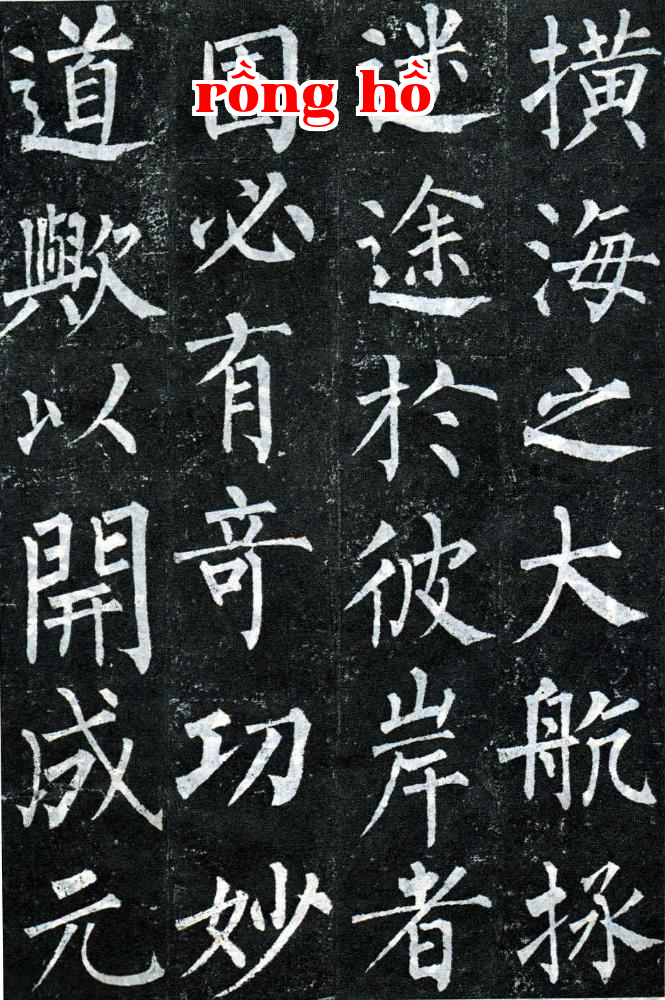 rồng hồ
橫海之大航拯
迷途於彼岸者
固必有奇功妙
道歟以開成元